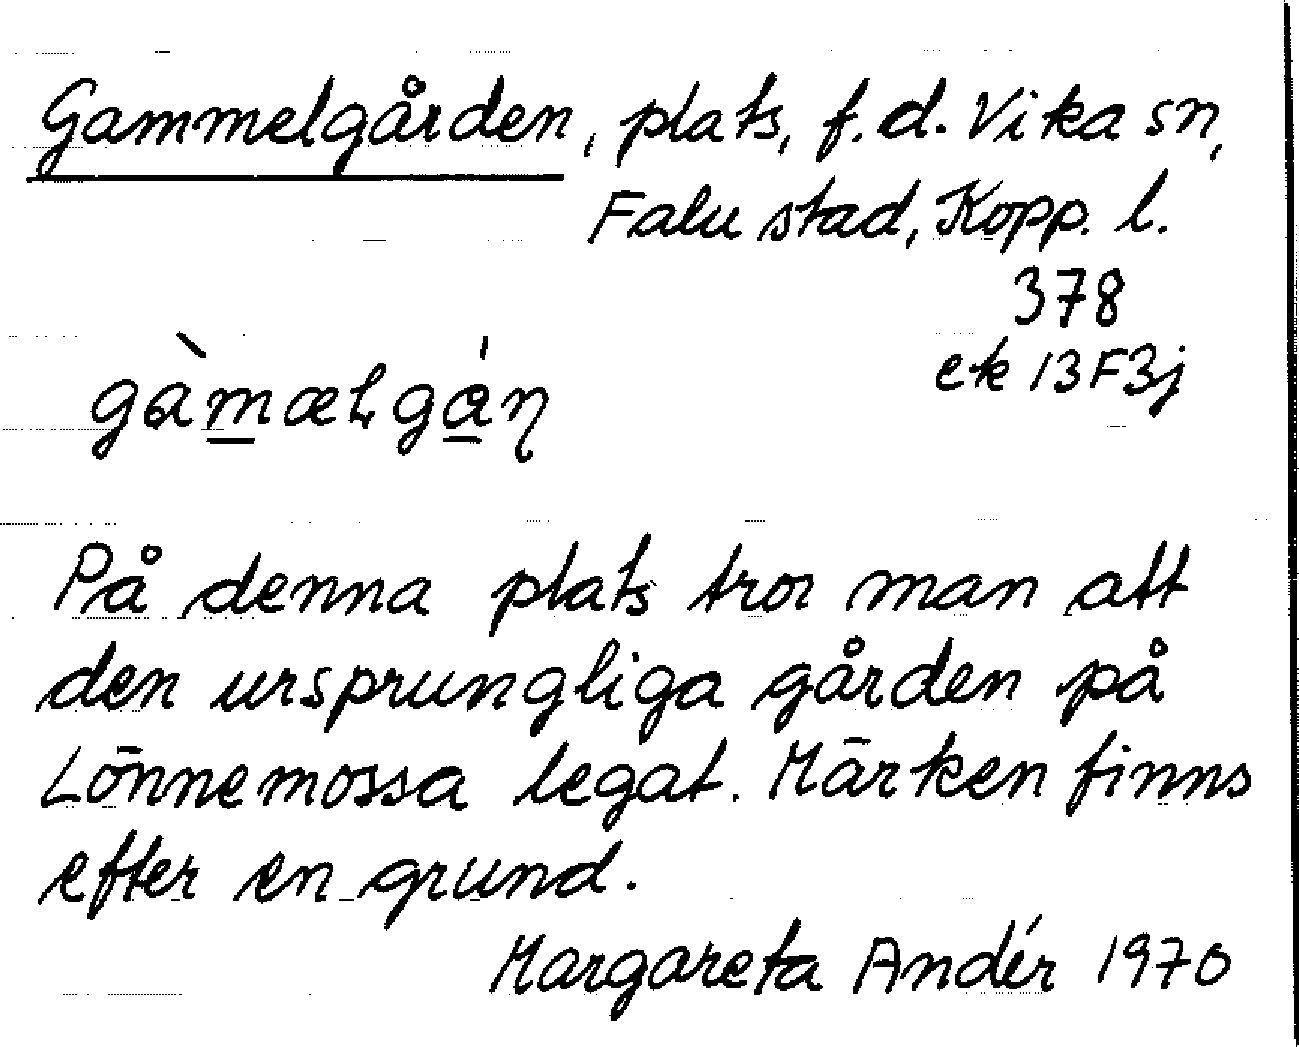 Gammelgården, plats, f.d. Vika sn,
Falu stad, Kopp. l.
378
ek 13F3j
På denna plats tror man att
den ursprungliga gården på
Lönnemossa legat. Märken finns
efter en grund.
Margareta Andér 1970